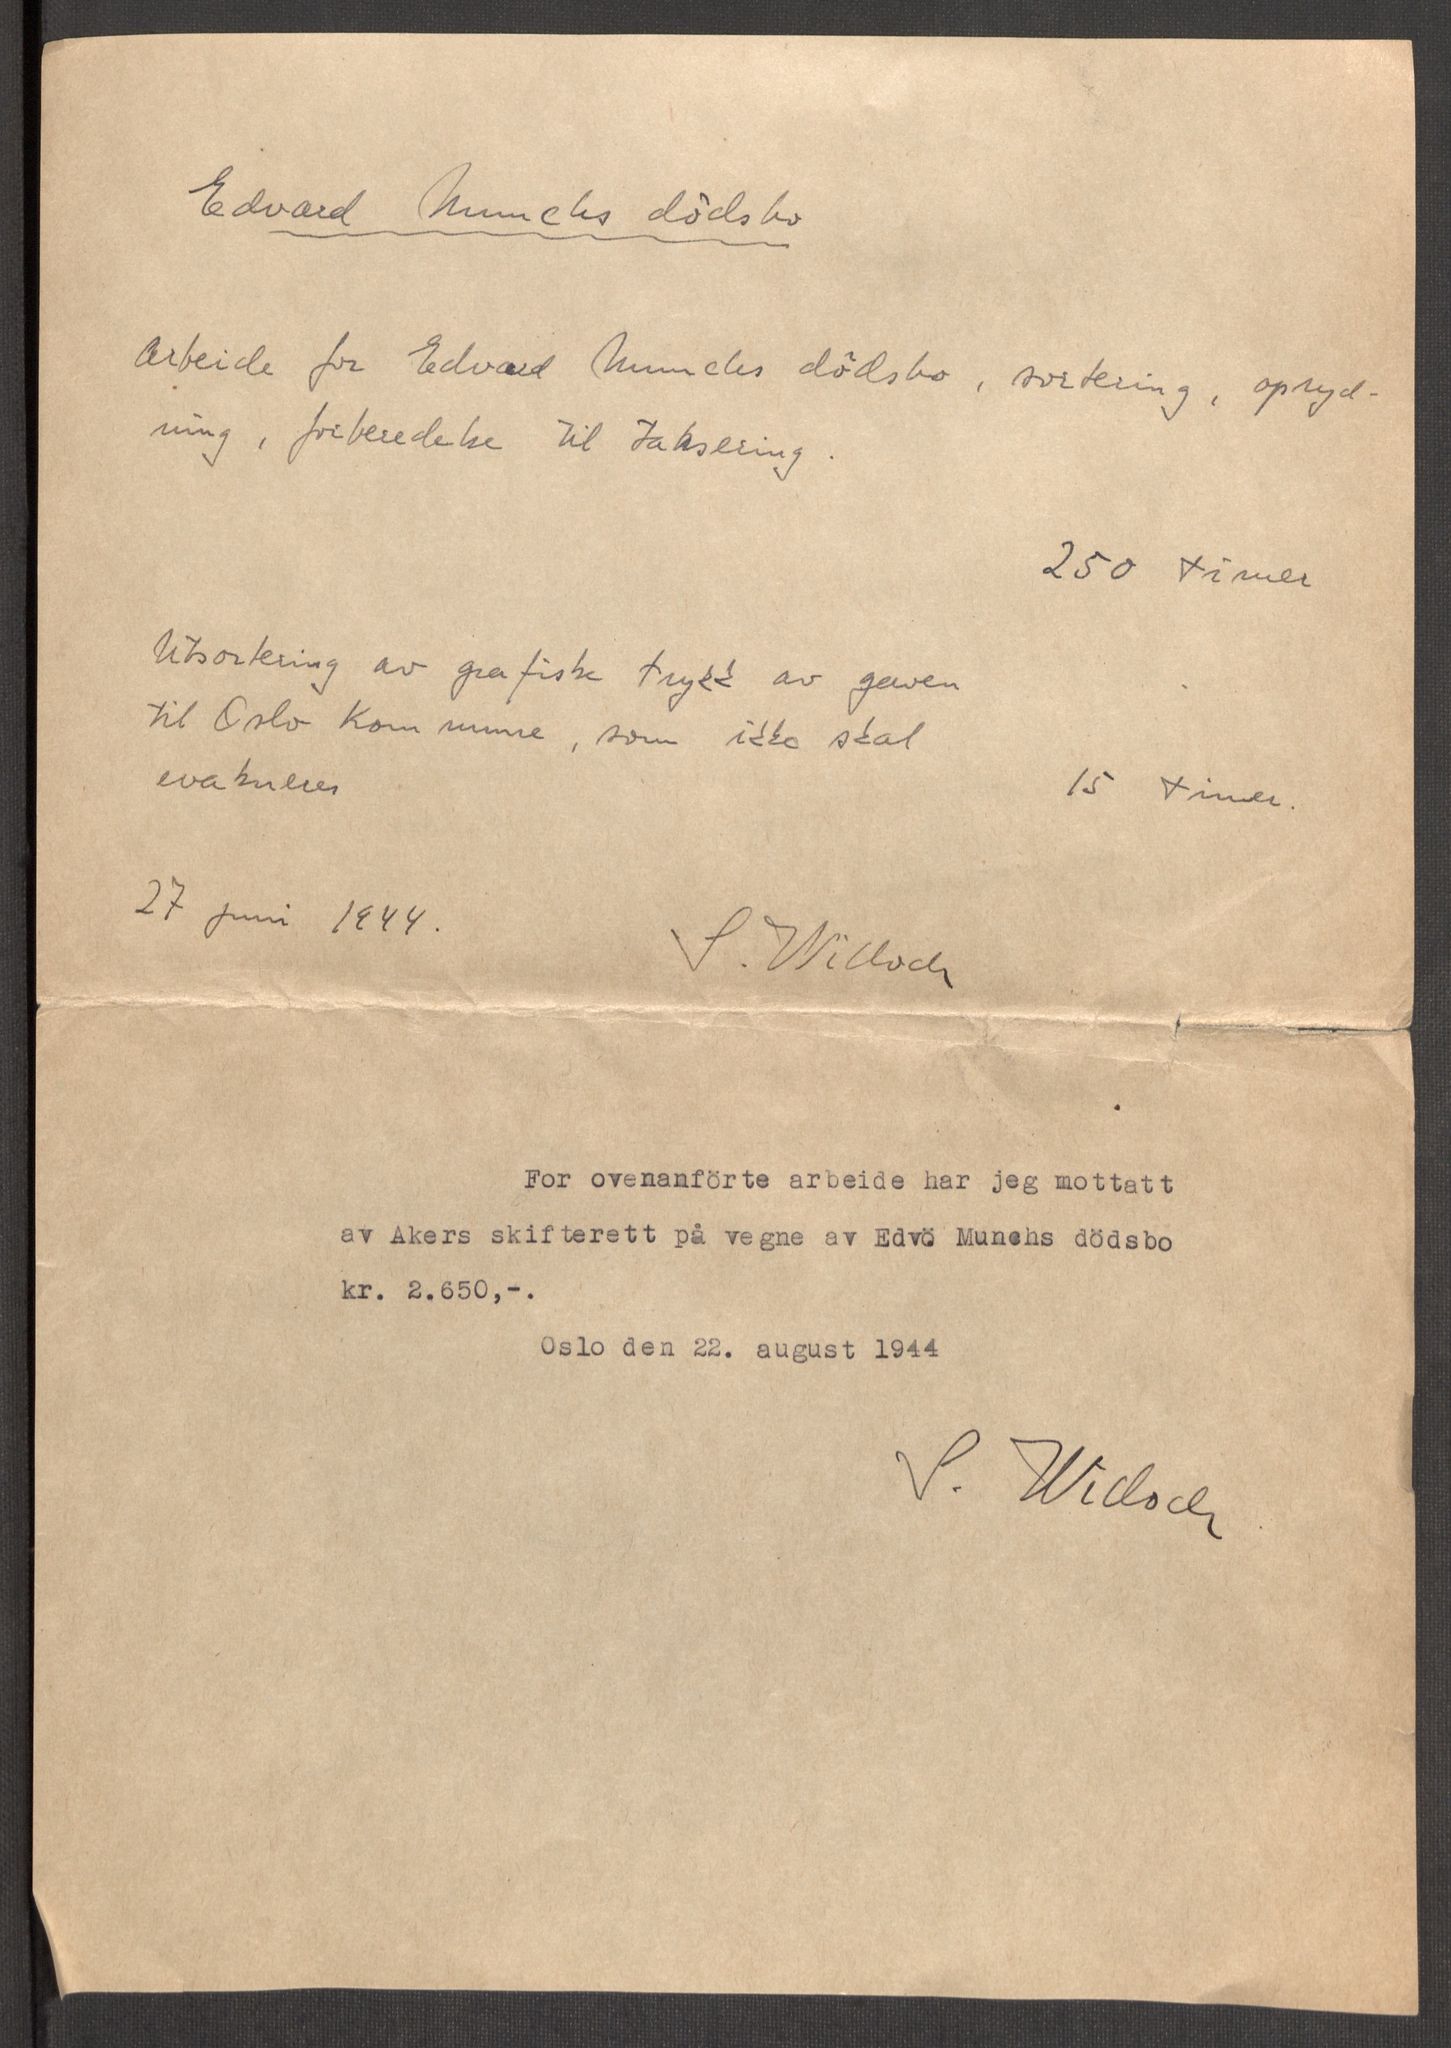 Edvard Munchs dödsbo
Arbeide for Edvard Munchs dödsbo, sortering, opryd-
ning, forberedelse til taksering.
250 timer
Utsortering av grafiske trykk av gaven
til Oslo Kommune, som ikke skal
evakueres
15 timer.
27 juni 1944.
S. Willoch
For ovenanförte arbeide har jeg mottatt
av Akers skifterett på vegne av Edvö Munchs dödsbo
kr. 2.650,-.
Oslo den 22. august 1944
S. Willoch